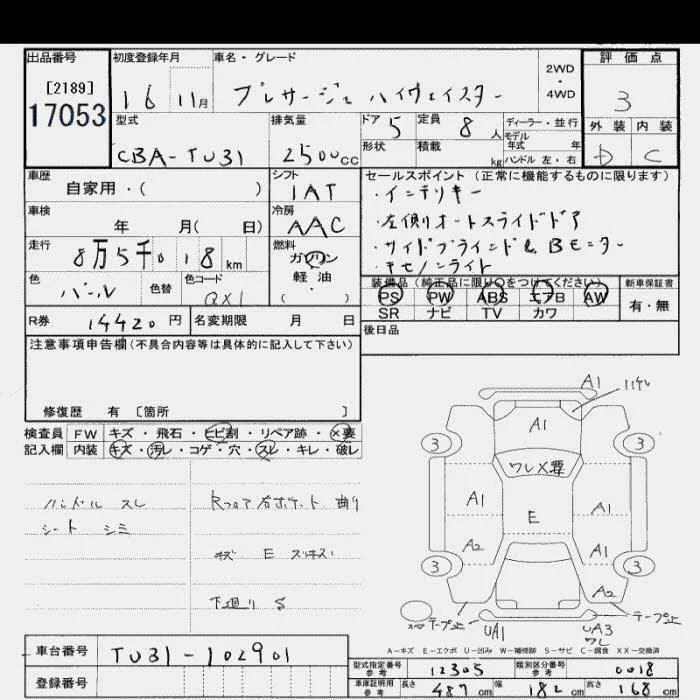 出品番号 初度登録年月 車名・グレード 2WD・4WD 評価点
[2189]
17053 16 11月 プレサージュ ハイウェイスター 3
型式 排気量 ドア 5 定員 8人 ディーラー・並行 外装 内装
モデル年式 年
CBA-TU31 2500cc 形状 積載 kg ハンドル 左・右 D C
車歴 シフト セールスポイント (正常に機能するものに限ります)
自家用・( ) IAT ・インテリキー
車検 冷房 ・左側オートスライドドア
年 月( 日) AAC ・サイドブラインド&Bモニター
走行 燃料 ・キセノンライト
8万5千018km ガソリン
色 色替 色コード 軽・油 装備品(純正品に限り○をつけてください) 新車保証書
パール QX1 ・( ) PS PW ABS エアB AW 有・無
SR ナビ TV カワ
R券 14420円 名変期限 月 日 後日品
注意事項申告欄(不具合内容等は具体的に記入して下さい)
修復歴 有 〔箇所 〕
検査員 FW キズ・飛石・ヒビ割・リペア跡・×要
記入欄 内装 キズ・汚レ・コゲ・穴・スレ・キレ・破レ
ハンドル スレ
シート シミ
Rフロア右ポケット 曲り
キズ E
下廻り S
A1
A1
3 3
ワレX要
A1 A1
E
A2 A1
3 3
A2
テープ上 テープ上
UA1 UA3
ワレ
A-キズ E-エクボ U-凹み W-補修跡 S-サビ C-腐食 XX-交換済
車台番号 TU31-102901
登録番号
型式指定番号 参考 12305 類別区分番号 参考 0018
車庫証明用 参考 長さ 487cm 幅 182cm 高さ 168cm